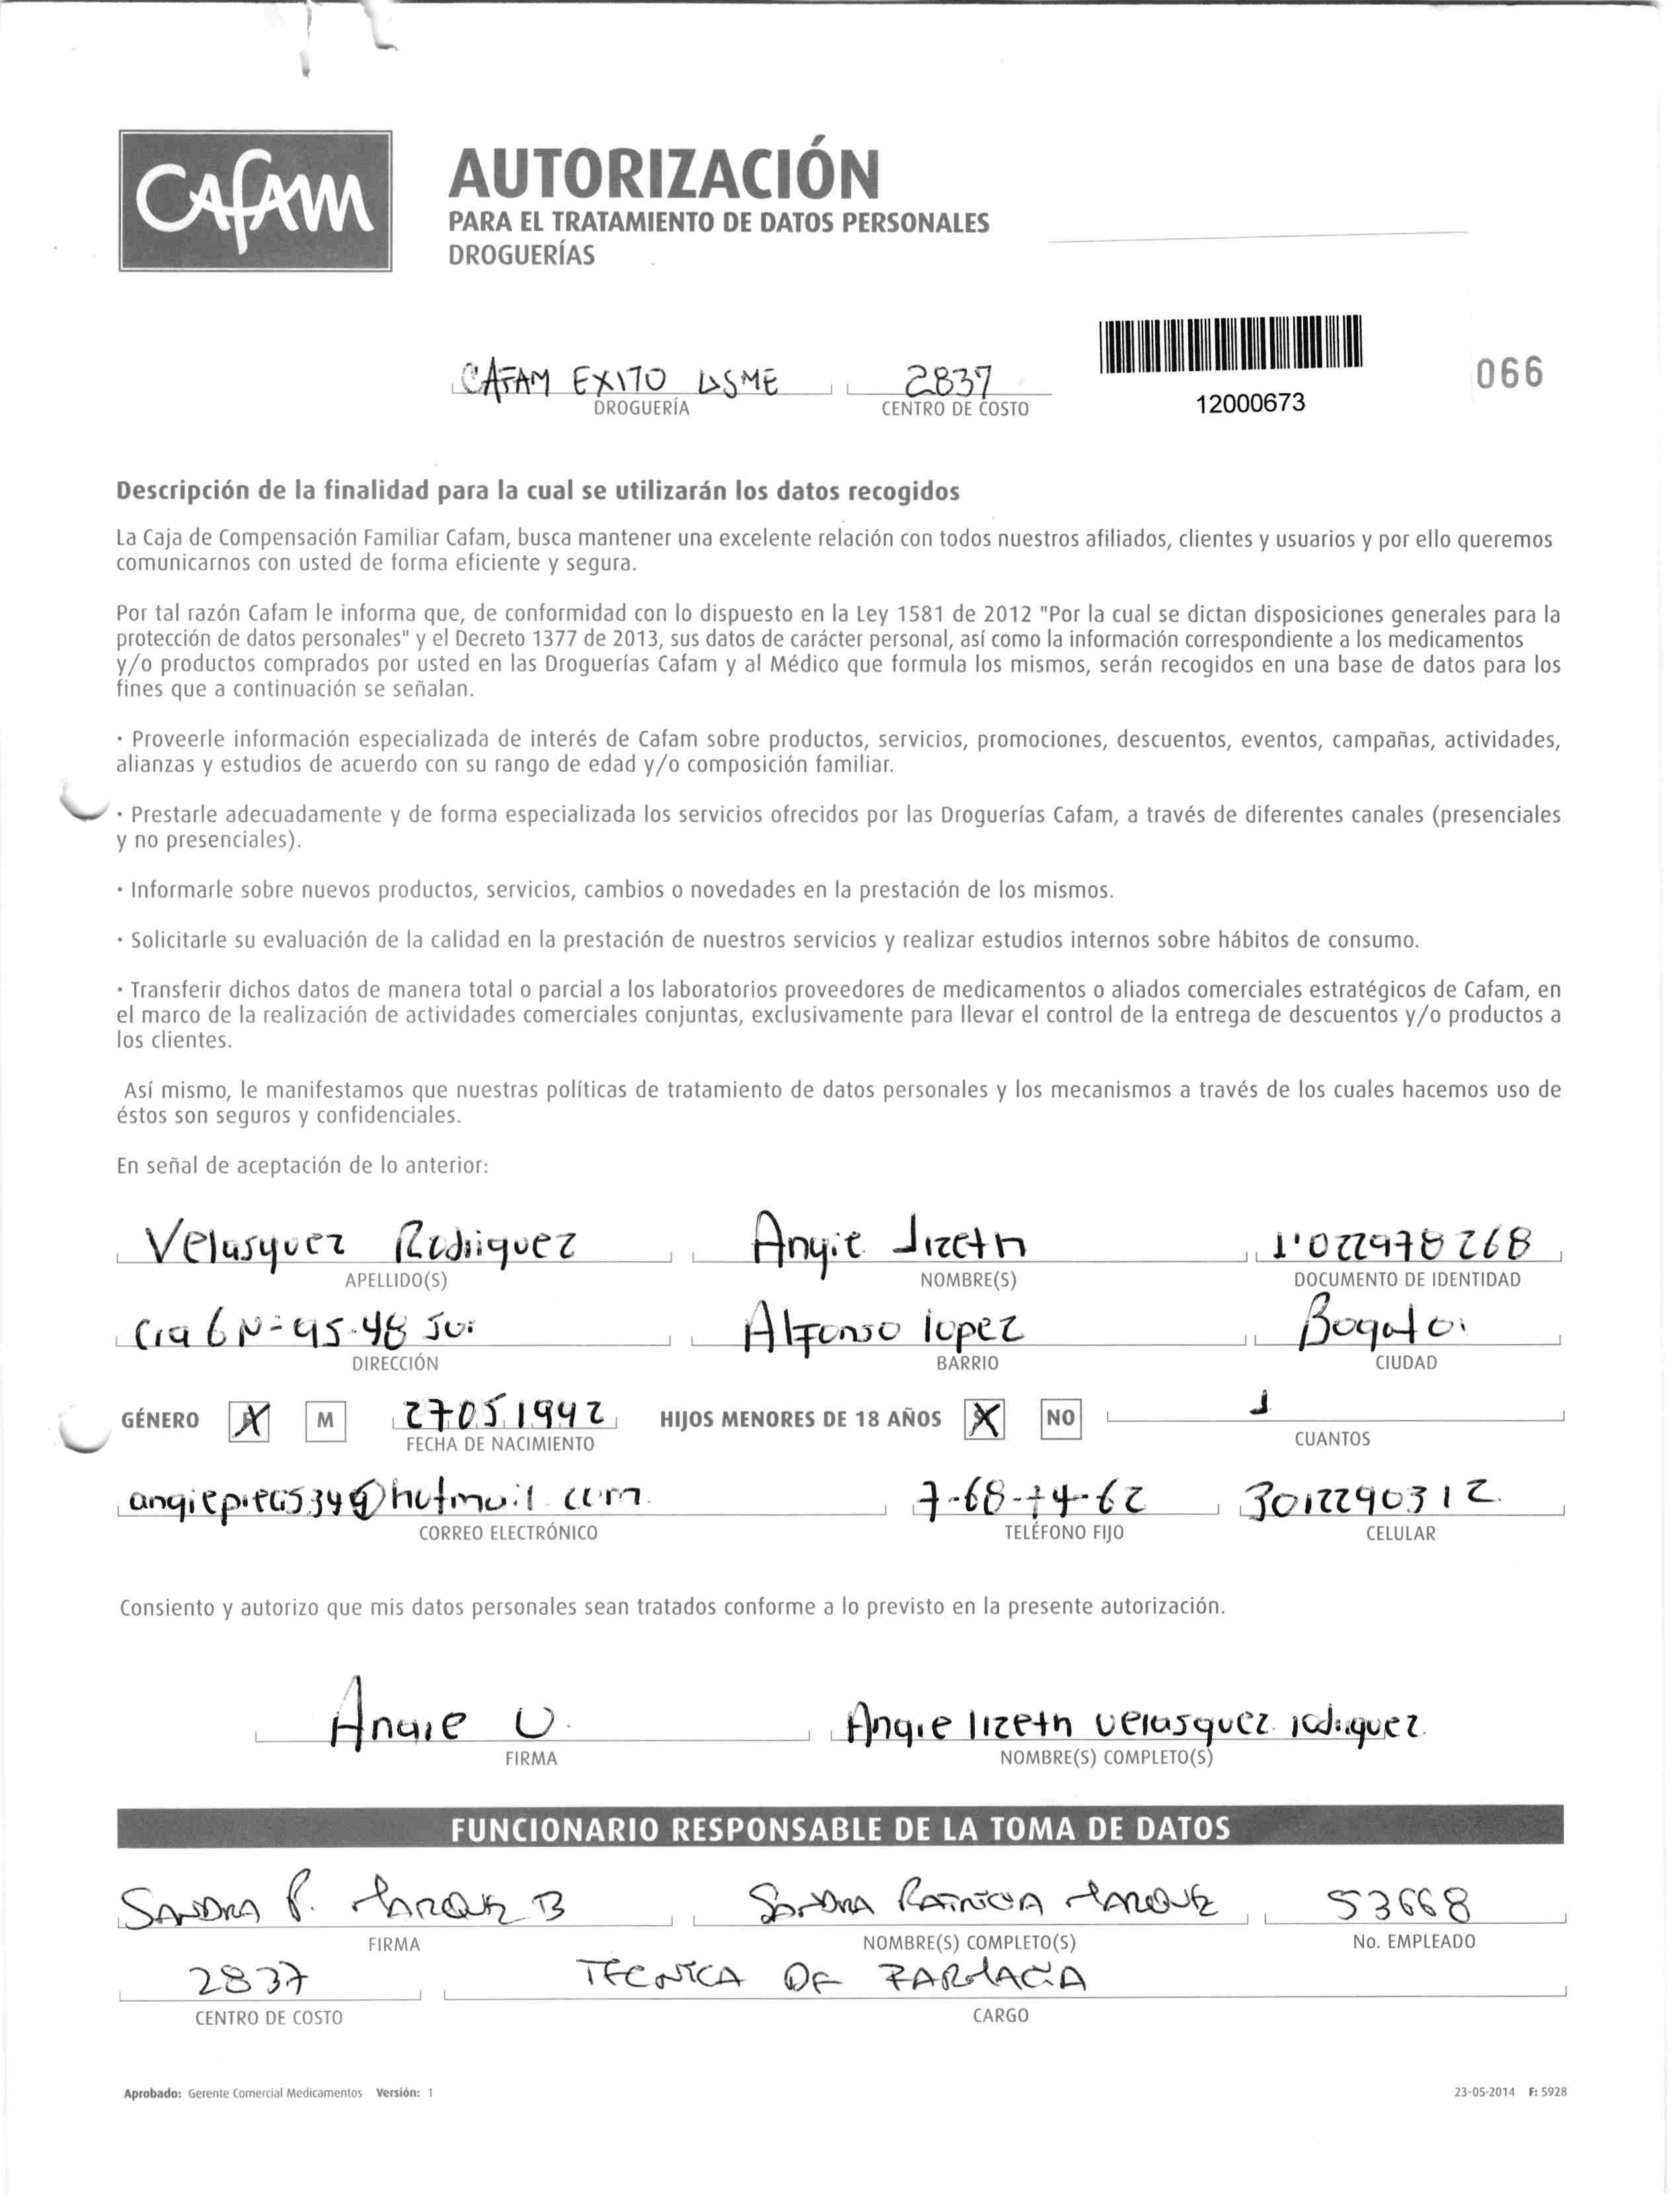 Cafam
AUTORIZACIÓN
PARA EL TRATAMIENTO DE DATOS PERSONALES
DROGUERÍAS
CAFAM EXITO USME 2837
DROGUERÍA CENTRO DE COSTO
12000673
066
Descripción de la finalidad para la cual se utilizarán los datos recogidos
La Caja de Compensación Familiar Cafam, busca mantener una excelente relación con todos nuestros afiliados, clientes y usuarios y por ello queremos
comunicarnos con usted de forma eficiente y segura.
Por tal razón Cafam le informa que, de conformidad con lo dispuesto en la Ley 1581 de 2012 "Por la cual se dictan disposiciones generales para la
protección de datos personales" y el Decreto 1377 de 2013, sus datos de carácter personal, así como la información correspondiente a los medicamentos
y/o productos comprados por usted en las Droguerías Cafam y al Médico que formula los mismos, serán recogidos en una base de datos para los
fines que a continuación se señalan.
· Proveerle información especializada de interés de Cafam sobre productos, servicios, promociones, descuentos, eventos, campañas, actividades,
alianzas y estudios de acuerdo con su rango de edad y/o composición familiar.
· Prestarle adecuadamente y de forma especializada los servicios ofrecidos por las Droguerías Cafam, a través de diferentes canales (presenciales
y no presenciales).
· Informarle sobre nuevos productos, servicios, cambios o novedades en la prestación de los mismos.
· Solicitarle su evaluación de la calidad en la prestación de nuestros servicios y realizar estudios internos sobre hábitos de consumo.
· Transferir dichos datos de manera total o parcial a los laboratorios proveedores de medicamentos o aliados comerciales estratégicos de Cafam, en
el marco de la realización de actividades comerciales conjuntas, exclusivamente para llevar el control de la entrega de descuentos y/o productos a
los clientes.
Así mismo, le manifestamos que nuestras políticas de tratamiento de datos personales y los mecanismos a través de los cuales hacemos uso de
éstos son seguros y confidenciales.
En señal de aceptación de lo anterior:
Velasquez Rodriguez Angie lizeth 1'022978268
APELLIDO(S) NOMBRE(S) DOCUMENTO DE IDENTIDAD
Cra 6 N-95-48 Sur Alfonso lopez Bogota
DIRECCIÓN BARRIO CIUDAD
GÉNERO X M 27051992 HIJOS MENORES DE 18 AÑOS X NO 1
FECHA DE NACIMIENTO CUANTOS
7-68-74-62 3012290312
CORREO ELECTRÓNICO TELÉFONO FIJO CELULAR
Consiento y autorizo que mis datos personales sean tratados conforme a lo previsto en la presente autorización.
Angie V. Angie lizeth velasquez rodriguez
FIRMA NOMBRE(S) COMPLETO(S)
FUNCIONARIO RESPONSABLE DE LA TOMA DE DATOS
SANDRA P. MARQUEZ B SANDRA PATRICIA MARQUEZ 53668
FIRMA NOMBRE(S) COMPLETO(S) No. EMPLEADO
2837 TECNICA DE FARMACIA
CENTRO DE COSTO CARGO
Aprobado: Gerente Comercial Medicamentos Versión: 1 23-05-2014 F: 5928